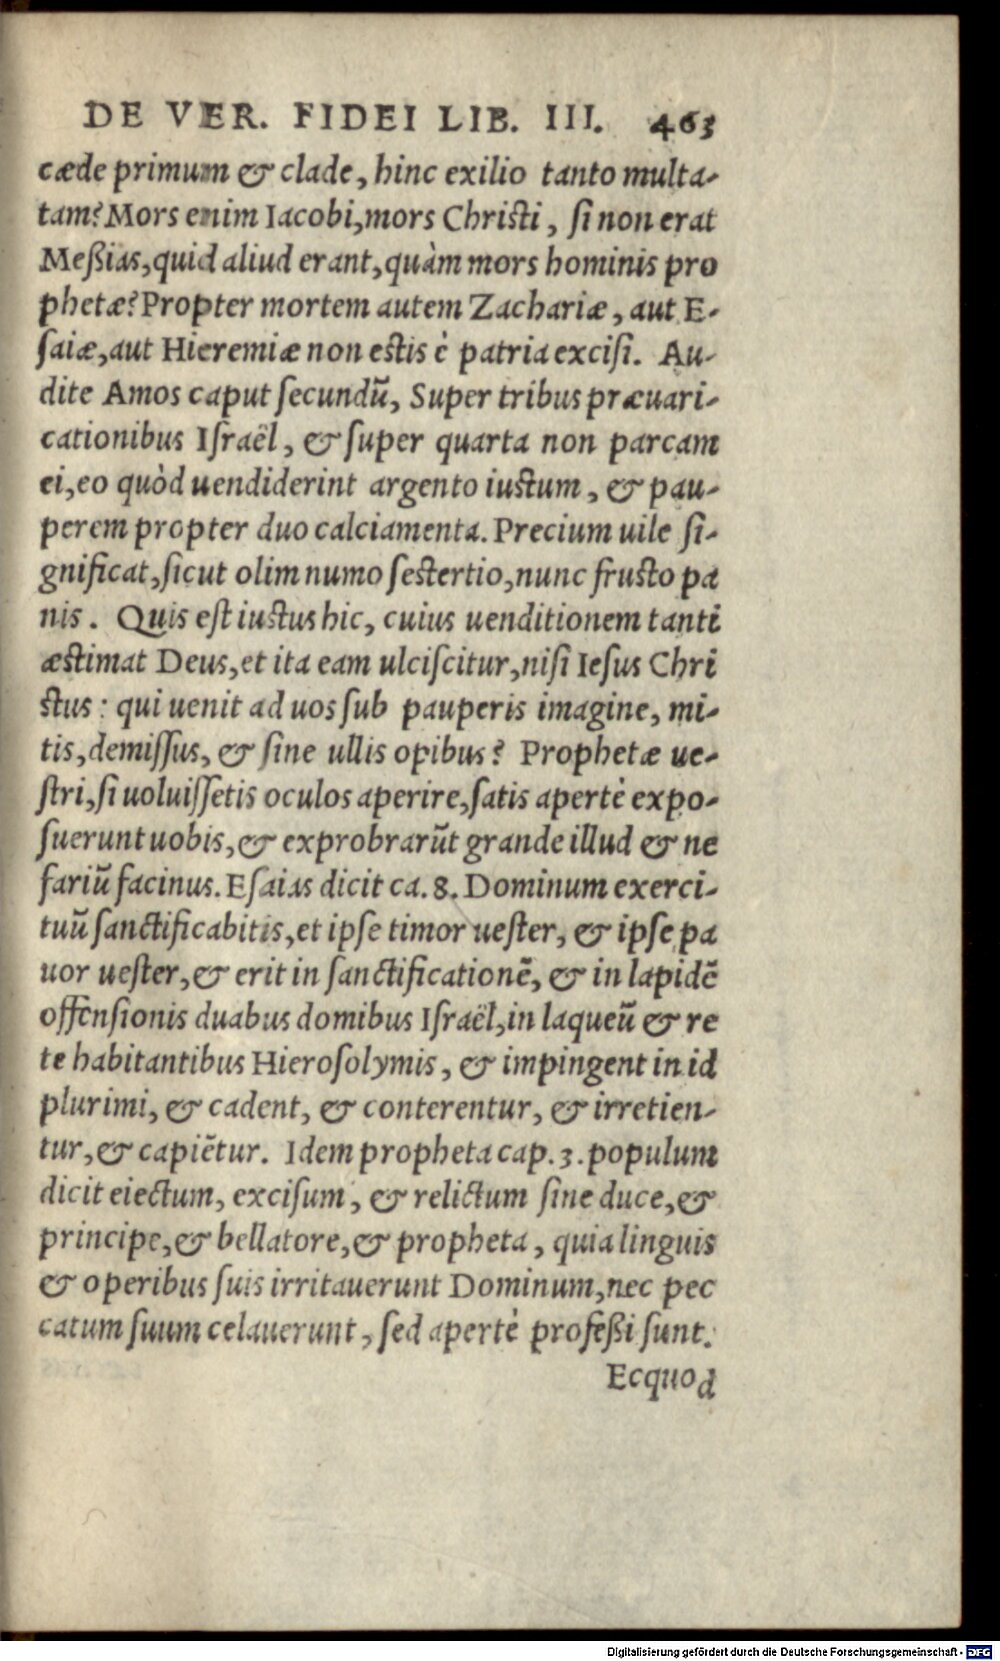 DE VER. FIDEI LIB. III. 463
cæde primum & clade, hinc exilio tanto multa-
tam? Mors enim Iacobi, mors Christi, si non erat
Meßias, quid aliud erant, quàm mors hominis pro
phetæ? Propter mortem autem Zachariæ, aut E-
saiæ, aut Hieremiæ non estis è patria excisi. Au-
dite Amos caput secundū, Super tribus præuari-
cationibus Israël, & super quarta non parcam
ei, eo quòd uendiderint argento iustum, & pau-
perem propter duo calciamenta. Precium uile si-
gnificat, sicut olim numo sestertio, nunc frusto pa
nis. Quis est iustus hic, cuius uenditionem tanti
æstimat Deus, et ita eam ulciscitur, nisi Iesus Chri
stus: qui uenit ad uos sub pauperis imagine, mi-
tis, demissus, & sine ullis opibus? Prophetæ ue-
stri, si uoluissetis oculos aperire, satis apertè expo-
suerunt uobis, & exprobrarūt grande illud & ne
fariū facinus. Esaias dicit ca. 8. Dominum exerci-
tuū sanctificabitis, et ipse timor uester, & ipse pa
uor uester, & erit in sanctificationē, & in lapidē
offensionis duabus domibus Israël, in laqueū & re
te habitantibus Hierosolymis, & impingent in id
plurimi, & cadent, & conterentur, & irretien-
tur, & capiētur. Idem propheta cap. 3. populum
dicit eiectum, excisum, & relictum sine duce, &
principe, & bellatore, & propheta, quia linguis
& operibus suis irritauerunt Dominum, nec pec
catum suum celauerunt, sed apertè profeßi sunt.
Ecquod
Digitalisierung gefördert durch die Deutsche Forschungsgemeinschaft - DFG